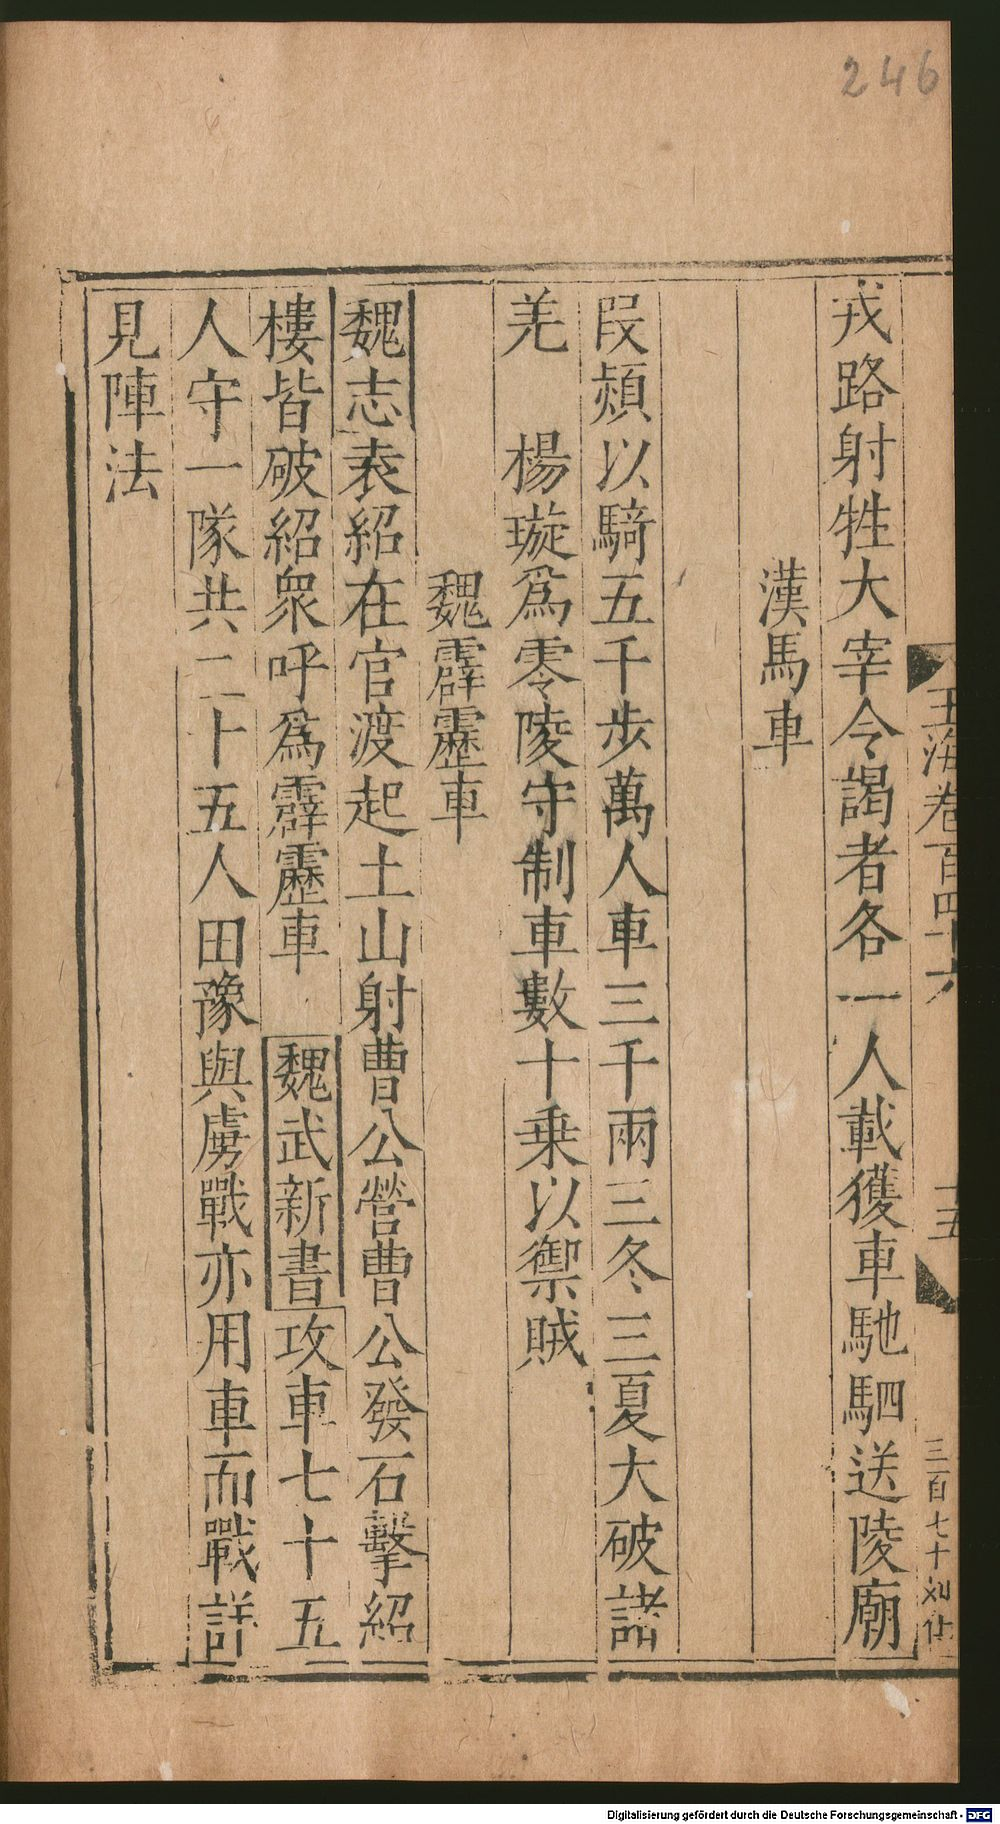 246
玉海卷百四十六
十五
三百七十
戎路射牲大宰令謁者各一人載獲車馳駟送陵廟
漢馬車
段熲以騎五千步萬人車三千兩三冬三夏大破諸
羌　楊璇爲零陵守制車數十乗以禦賊
魏霹靂車
魏志袁紹在官渡起土山射曹公營曹公發石擊紹
樓皆破紹衆呼爲霹靂車　魏武新書攻車七十五
人守一隊共二十五人田豫與虜戰亦用車而戰詳
見陣法
Digitalisierung gefördert durch die Deutsche Forschungsgemeinschaft - DFG